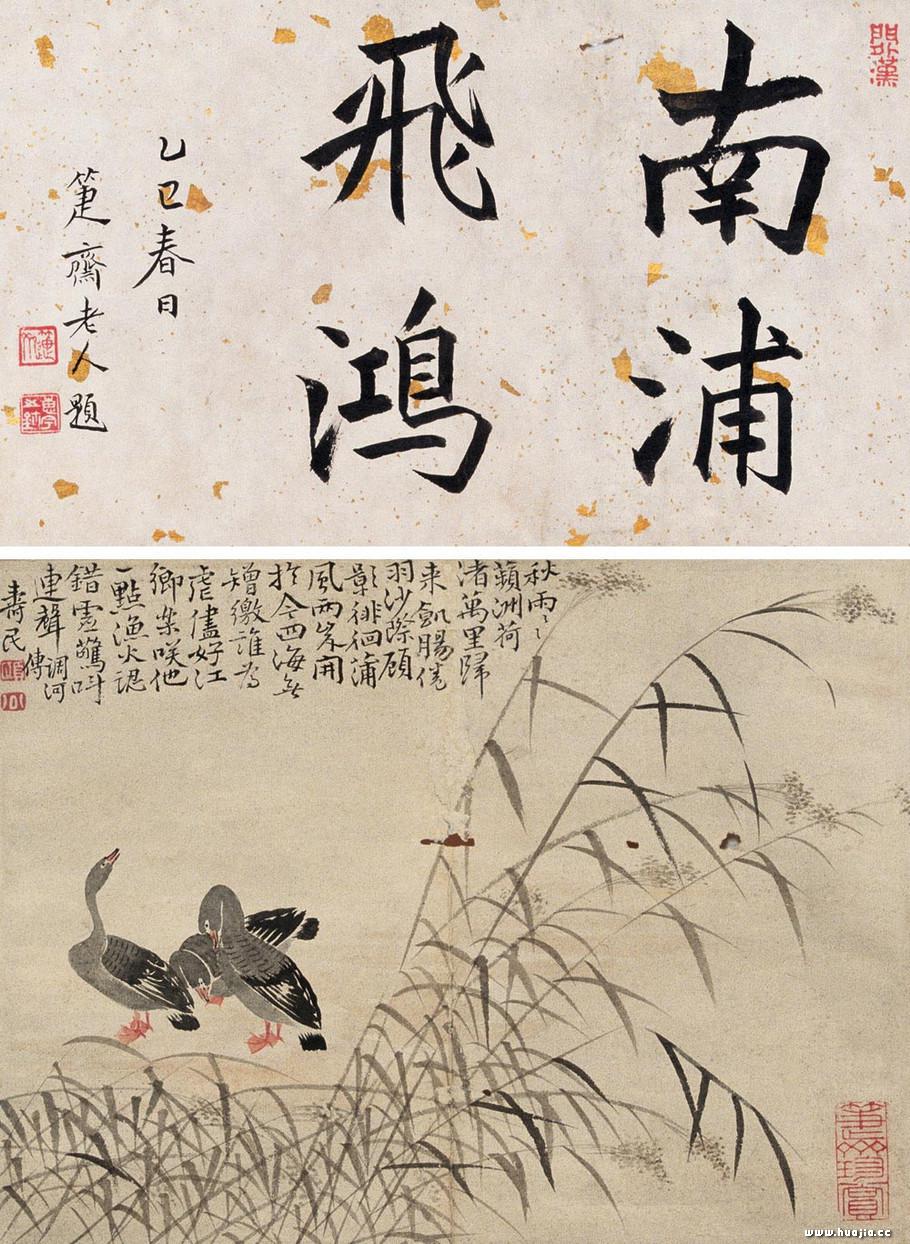 門外漢
南浦
飛鴻
乙巳春日
箑齋老人題
秋雨〻
蘋洲荷
渚萬里歸
来飢腸倦
羽沙際顧
影徘徊蒲
風兩岸開
於今四海無
矰繳誰為
虐儘好江
鄉樂咲他
一點漁火誤
錯虛驚叫
連聲 調河傳
壽民
www.huajia.cc